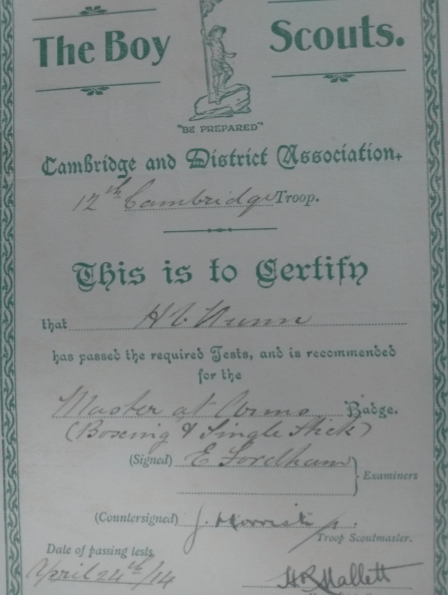 The Boy Scouts.
"BE PREPARED"
Cambridge and District Association.
12th Cambridge Troop.
This is to Certify
that H C Nunn
has passed the required Tests, and is recommended
for the
Master at Arms Badge.
(Boxing & Single Stick)
(Signed) E Fordham
Examiners
(Countersigned) J.
Troop Scoutmaster.
Date of passing tests
April 24th/14
HR Mallett